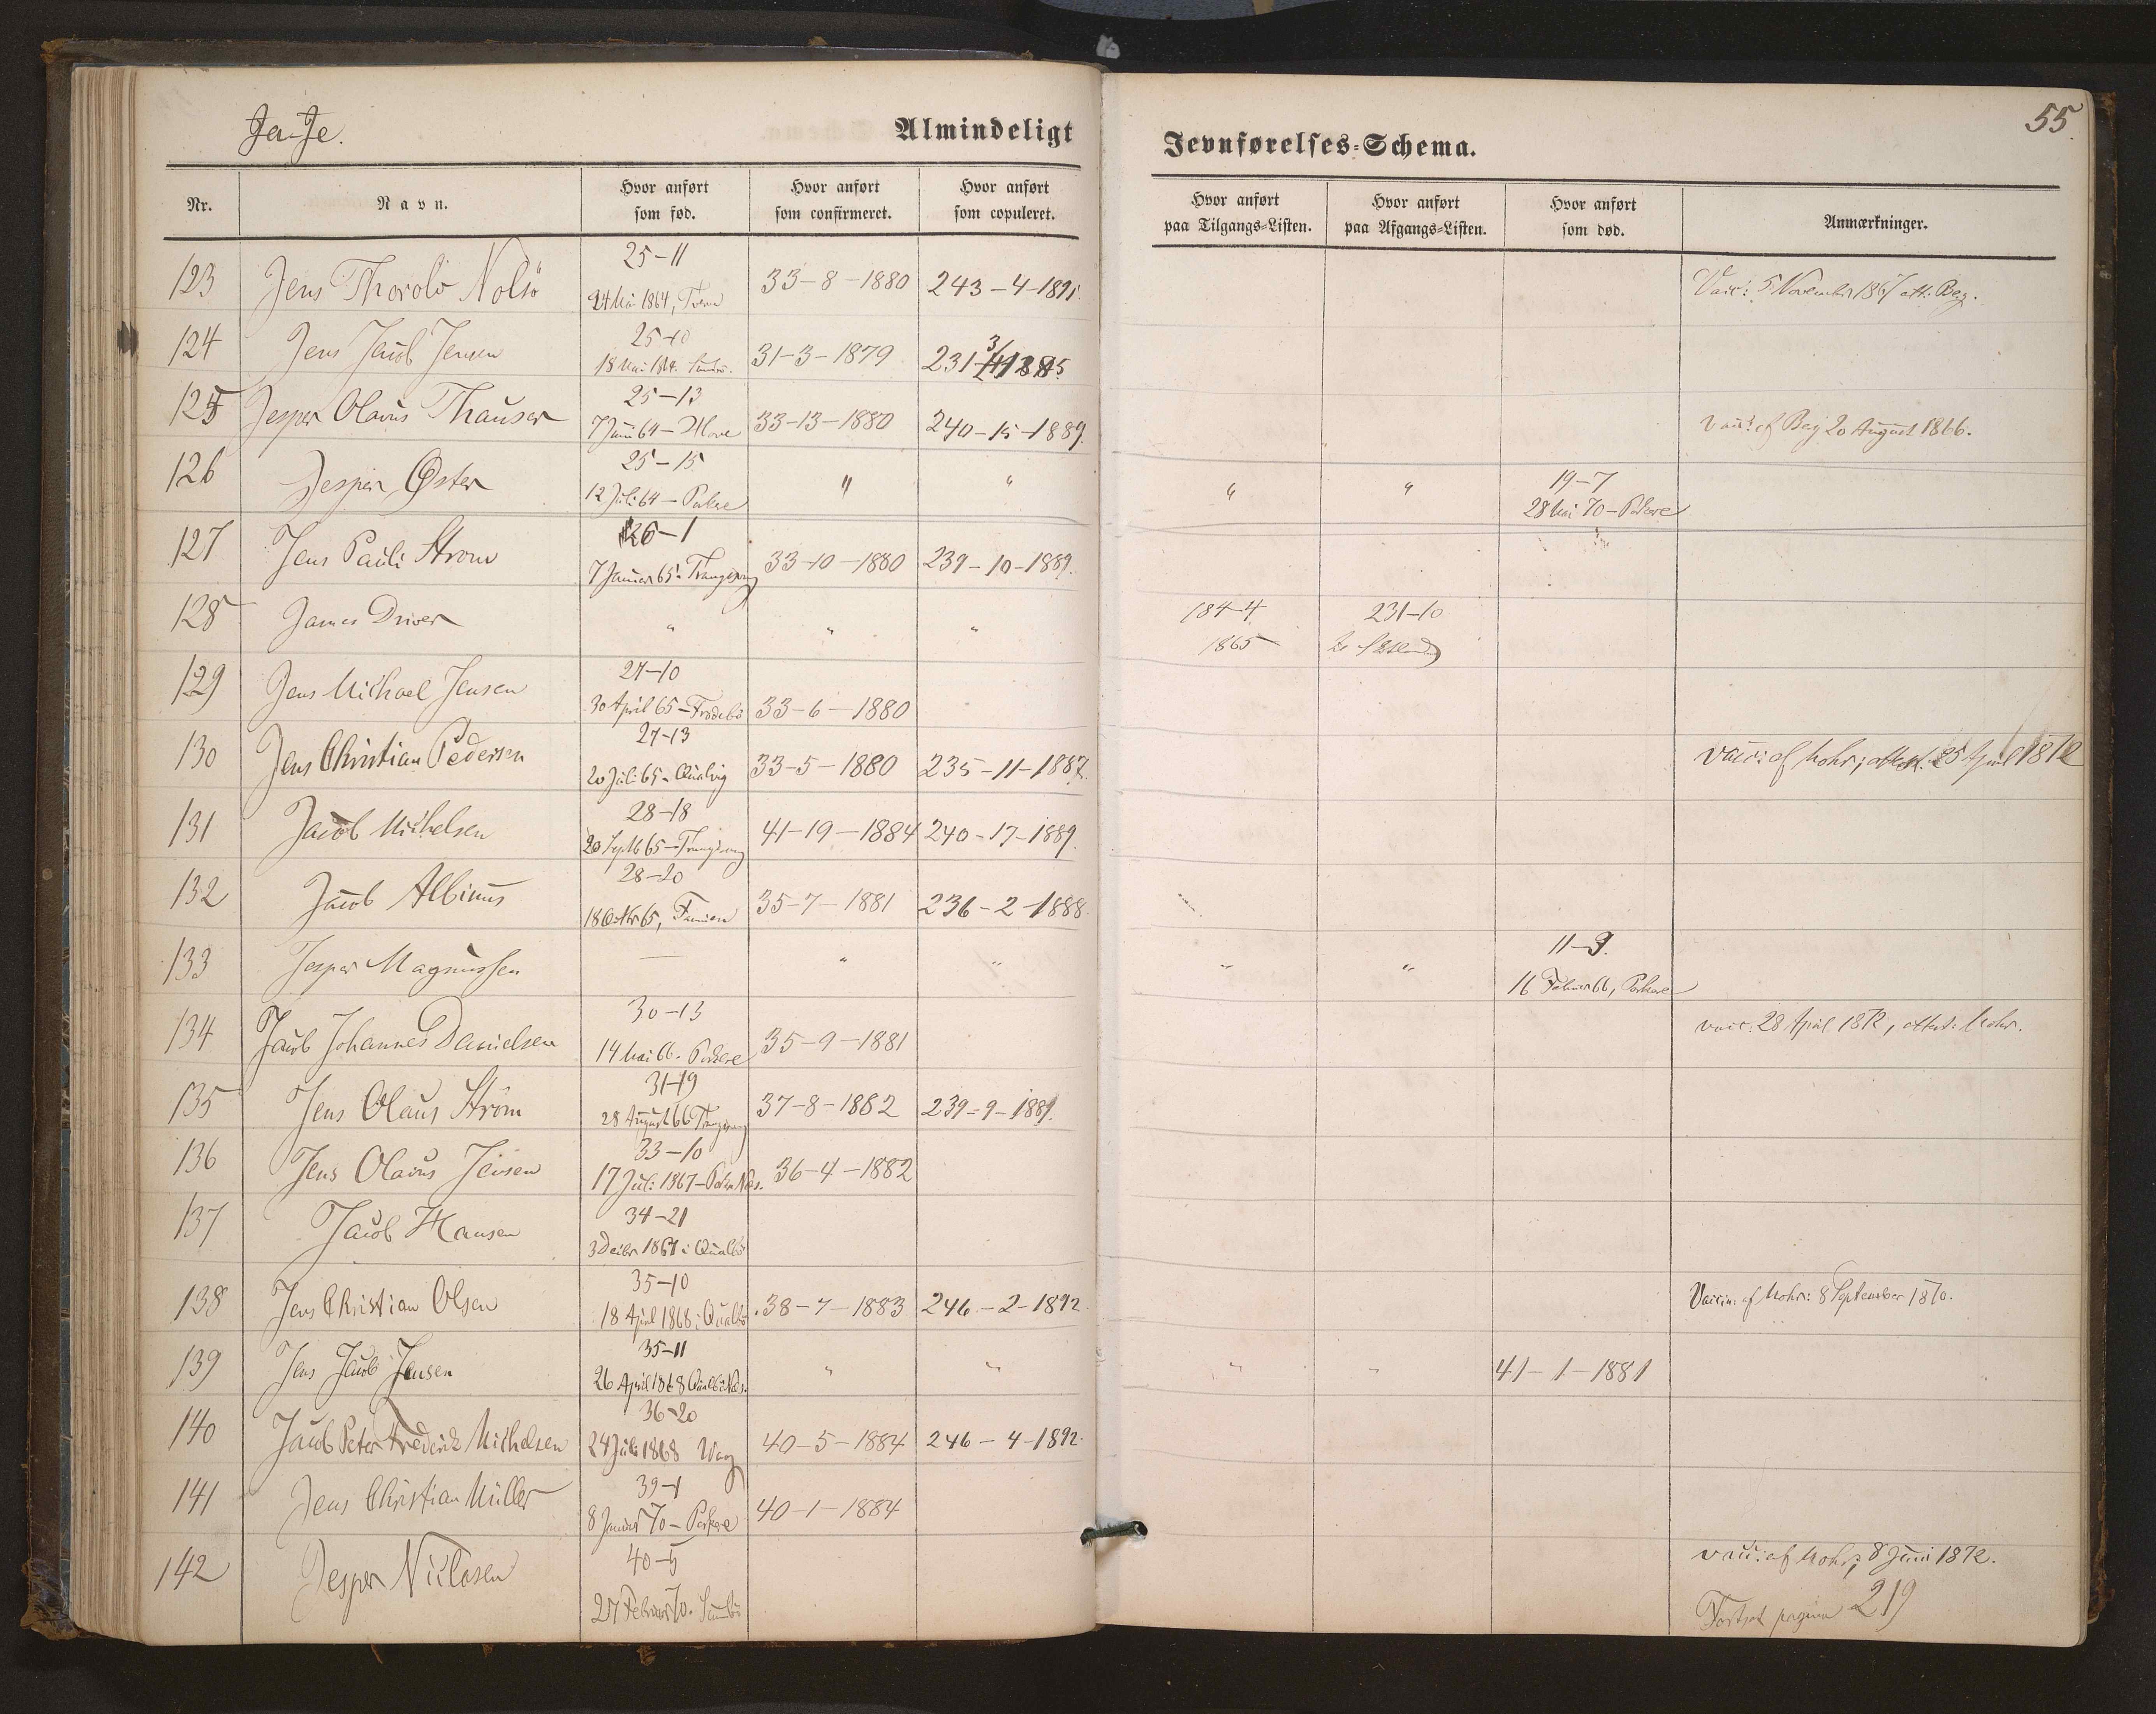 Ja-Je.
Almindeligt
Jevnførelses-Schema.
55.
Nr.
Navn.
Hvor anført
som fød.
Hvor anført
som confirmeret.
Hvor anført
som copuleret.
Hvor anført
paa Tilgangs-Listen.
Hvor anført
paa Afgangs-Listen.
Hvor anført
som død.
Anmærkninger.
25-11
123 Jens Nolsö 33-8-1880 243-4-1891.
Mai 1864,
Vacc: 5 November 1867 att: Bay.
25-10
124 Jens Jacob Jensen 31-3-1879 231-
18 Mai
25-13
125 Jesper Olavus 33-13-1880 240-15-1889.
7 Juni 64 - Hove
Vacc: af Bay 20 August 1866.
25-15
126 Jesper Øster " " " " 19-7
12 Juli 64 - Porkere
28 Mai 70 - Porkere
26-1
127 Jens Pauli Strom 33-10-1880 239-10-1889.
7 Januar 65 -
128 James Driver " " " 184-4 231-10
1865
27-10
129 Jens Michael Jensen 33-6-1880
30 April 65 - Frodebö
27-13
130 Jens Christian Pedersen 33-5-1880 235-11-1887.
20 Juli 65 - Qualvig
vacc: af Mohr; attest. 25 April 1872
28-18
131 Jacob Michelsen 41-19-1884 240-17-1889.
20 Septb 65 -
28-20
132 Jacob Albinus 35-7-1881 236-2-1888.
18 Octbr 65,
133 Jesper Magnussen — " " " " 11-3.
16 Februar 66, Porkere
30-13
134 Jacob Johannes Danielsen 35-9-1881
14 Mai 66. Porkere
vacc: 28 April 1872, attest: Mohr.
31-19
135 Jens Olaus Ström 37-8-1882 239-9-1889.
28 August 66
33-10
136 Jens Olavus Jensen 36-4-1882
17 Juli 1867 -
34-21
137 Jacob Hansen
3 Decbr 1867 i Qualbö
35-10
138 Jens Christian Olsen 38-7-1883 246-2-1892.
18 April 1868 i Qualbö
Vaccin: af Mohr: 8 September 1870.
35-11
139 Jens Jacob Jensen " " " " 41-1-1881
26 April 1868 Qualbö Næs.
36-20
140 Jacob Peter Frederik Michelsen 40-5-1884 246-4-1892.
24 Juli 1868 Waag
39-1
141 Jens Christian Müller 40-1-1884
8 Januar 70 - Porkere
40-5
142 Jesper Niclasen
27 Februar 70. Sumbö
vacc: af Mohr, 8 Juni 1872.
Fortsat pagina 219